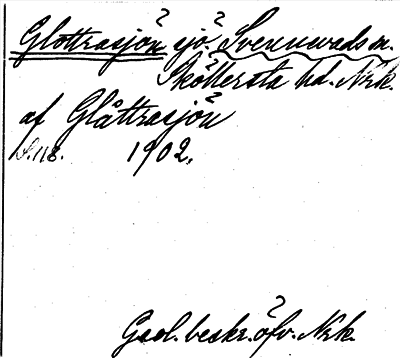 Glottrasjön sjö. Svennevads sn.
Sköllersta hd. Nrk.
af Glåttrasjön
S. 118. 1902.
Geol. beskr. öfv. Nrk.